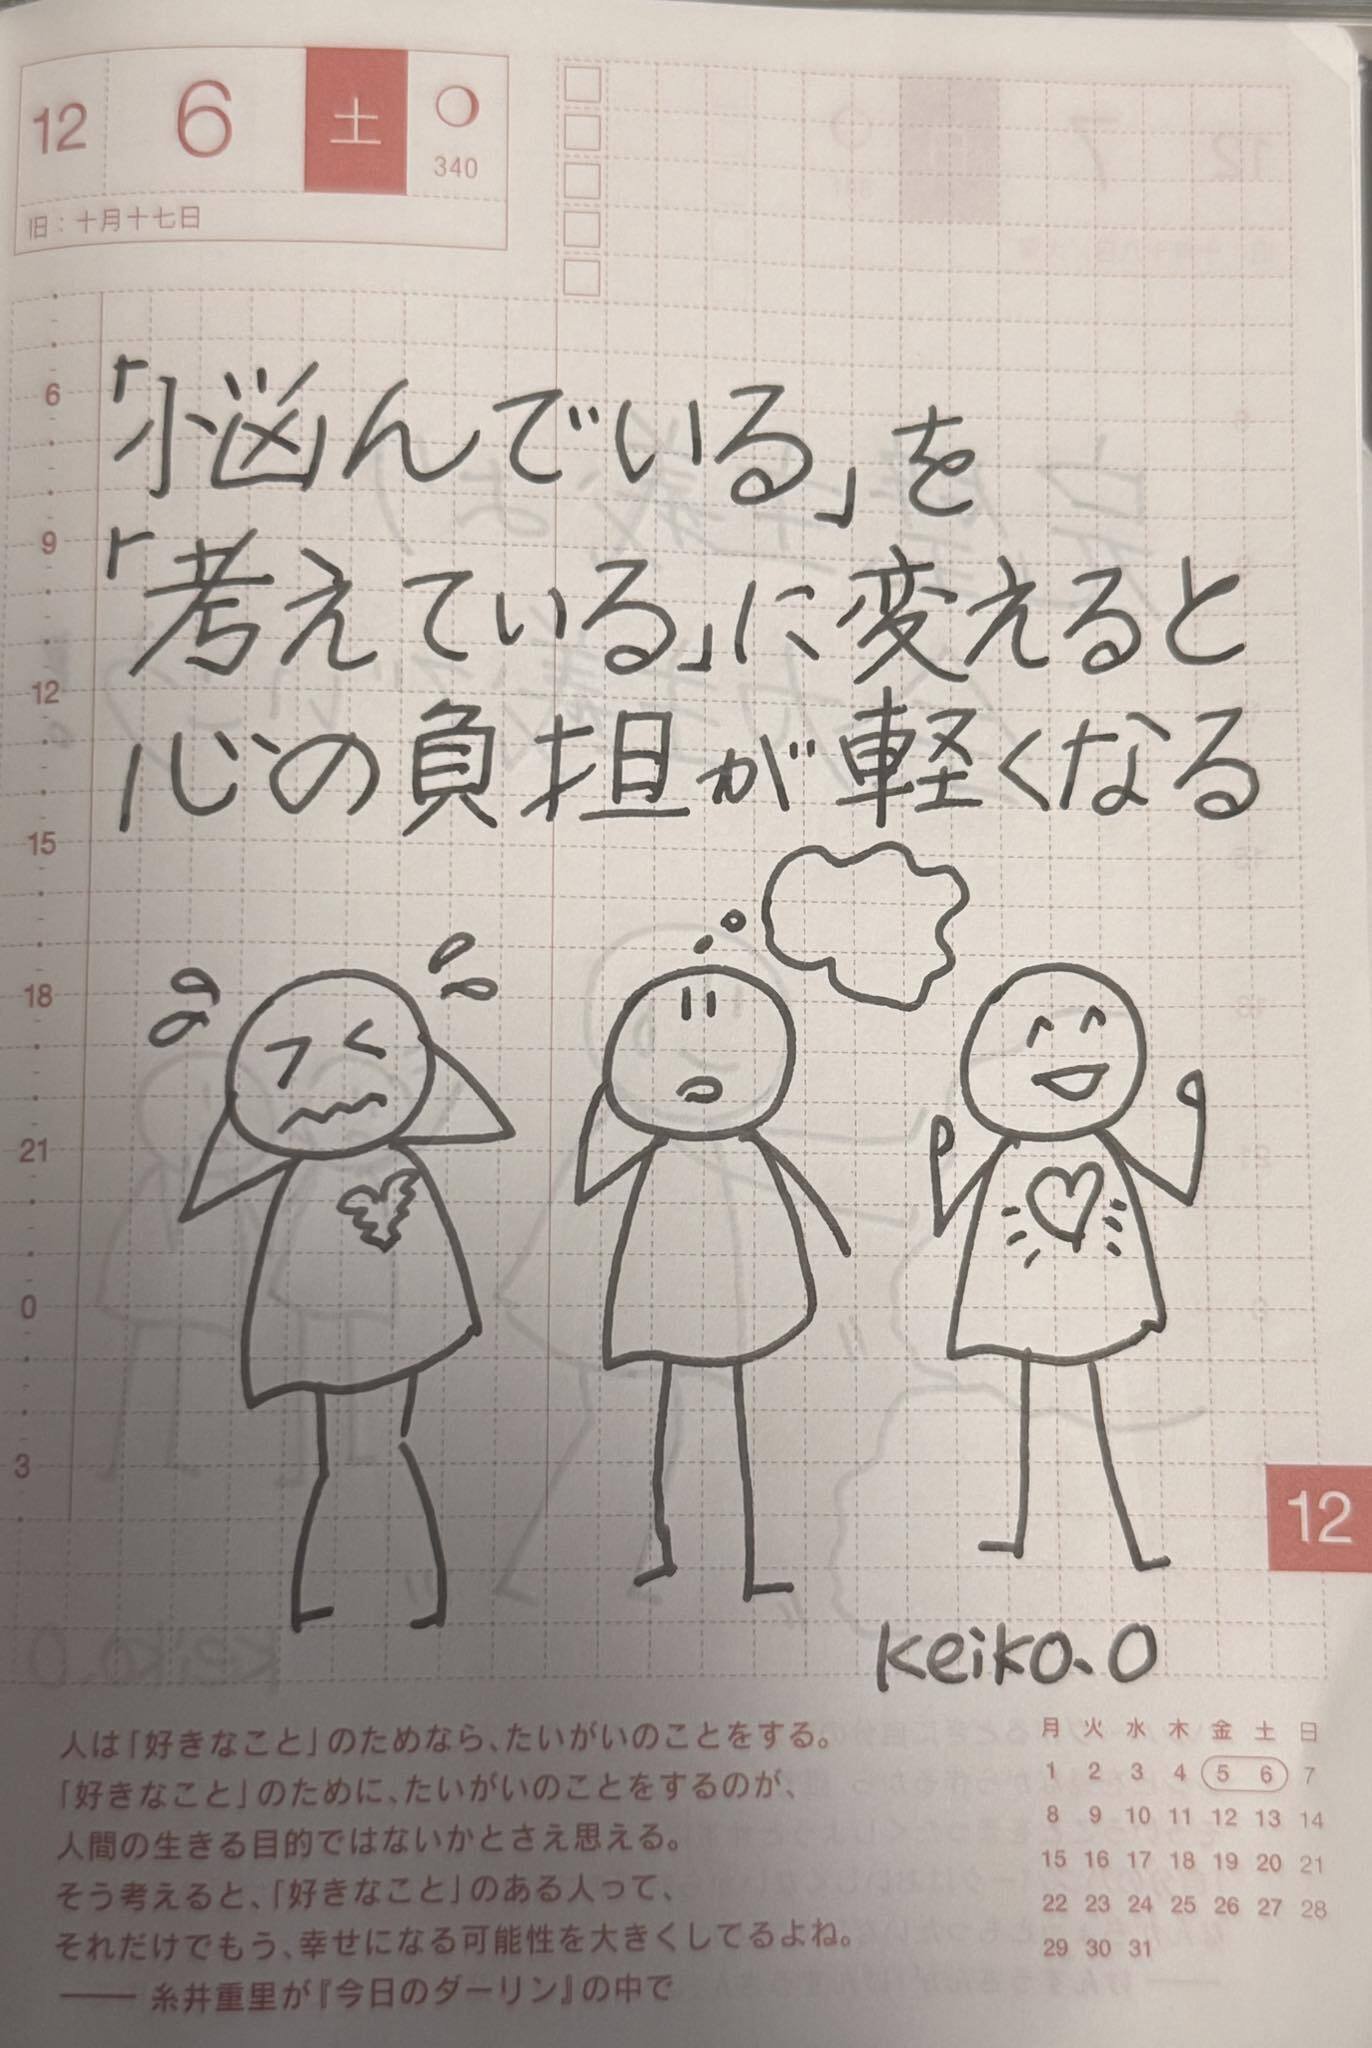 12 6 土
340
旧：十月十七日
「悩んでいる」を
「考えている」に変えると
心の負担が軽くなる
6
9
12
15
18
21
0
3
12
keiko.O
人は「好きなこと」のためなら、たいがいのことをする。
「好きなこと」のために、たいがいのことをするのが、
人間の生きる目的ではないかとさえ思える。
そう考えると、「好きなこと」のある人って、
それだけでもう、幸せになる可能性を大きくしてるよね。
―― 糸井重里が『今日のダーリン』の中で
月 火 水 木 金 土 日
1 2 3 4 5 6 7
8 9 10 11 12 13 14
15 16 17 18 19 20 21
22 23 24 25 26 27 28
29 30 31